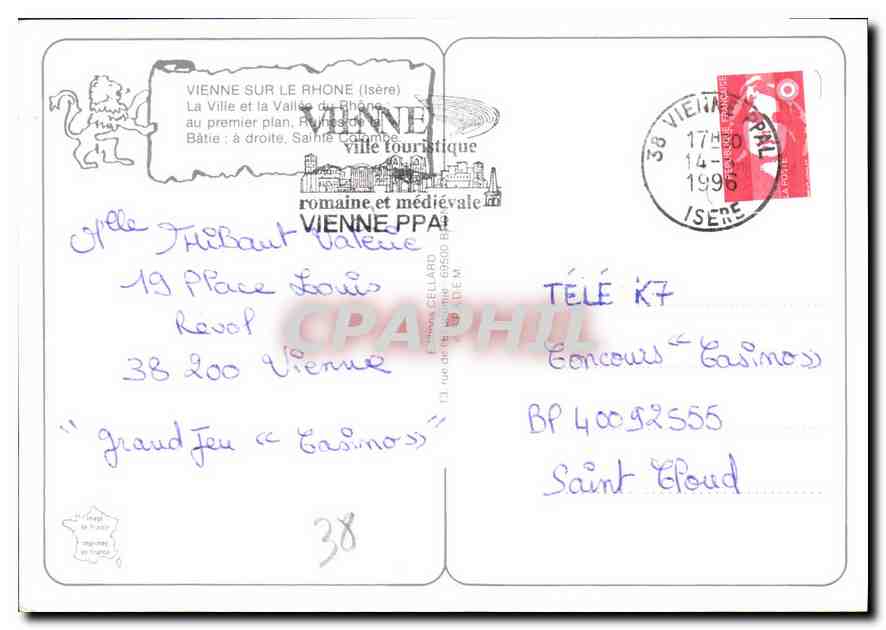 VIENNE SUR LE RHONE (Isère)
La Ville et la Vallée du Rhône ;
au premier plan, Ruines de la
Bâtie ; à droite, Sainte Colombe.
VIENNE
ville touristique
romaine et médiévale
VIENNE PPAL
38 VIENNE PPAL
17H
14-
1996
ISERE
REPUBLIQUE FRANCAISE
LA POSTE
Mlle Thibaut Valérie
19 Place Louis
Revol
38 200 Vienne
"Grand Jeu « Casino »"
Editions CELLARD
69500 BRON
CPAPHIL
TÉLÉ K7
Concours « Casino »
BP 40092555
Saint Cloud
image
de France
imprimée
en France
38